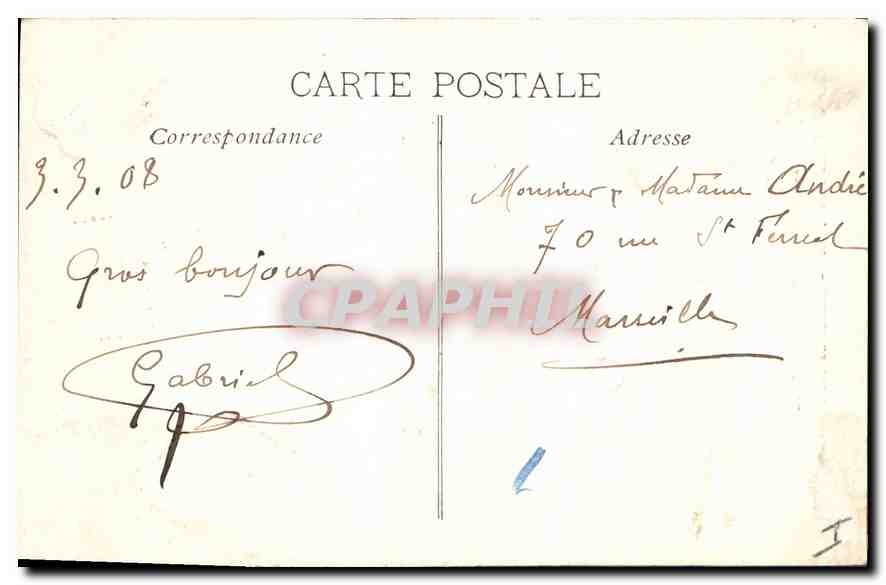 CARTE POSTALE
Correspondance
3.3.08
Gros bonjour
Gabriel
Adresse
Monsieur & Madame André
70 rue St Ferréol
Marseille
CPAPHIL
I